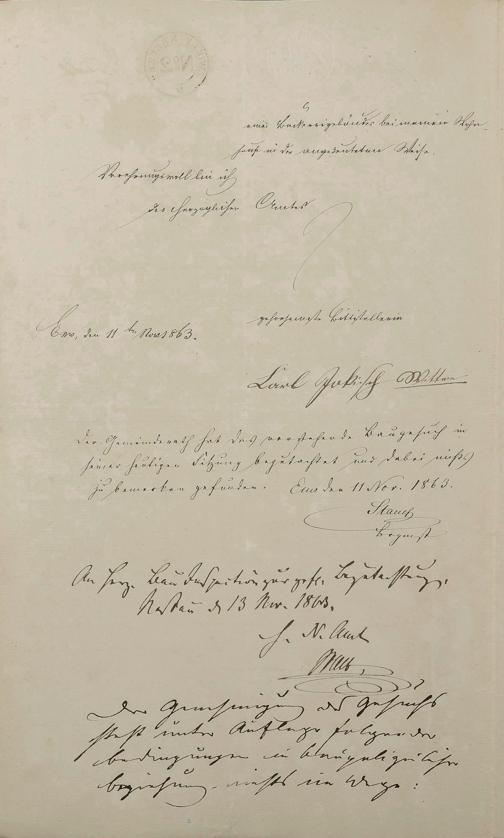 eines Backereigebäudes bei meinem Wohn-
hause in der angedeuteten Weise.
Verehrungsvoll bin ich
des Herzoglichen Amtes
gehorsamste Bittstellerin
Ems, den 11ten Nov. 1863.
Carl Jokisch Wittwe
Der Gemeinderath hat das vorstehende Baugesuch in
seiner heutigen Sitzung begutachtet und dabei nichts
zu bemerken gefunden. Ems den 11 Nov. 1863.
Stauch
Bürgmstr
An Herzgl. Bau Inspection zur gefl. Begutachtung.
Nassau d 13 Nov. 1863.
H. N. Amt
Der Genehmigung des Gesuchs
steht unter Auflage folgender
Bedingungen in baupolizeilicher
Beziehung nichts im Wege: